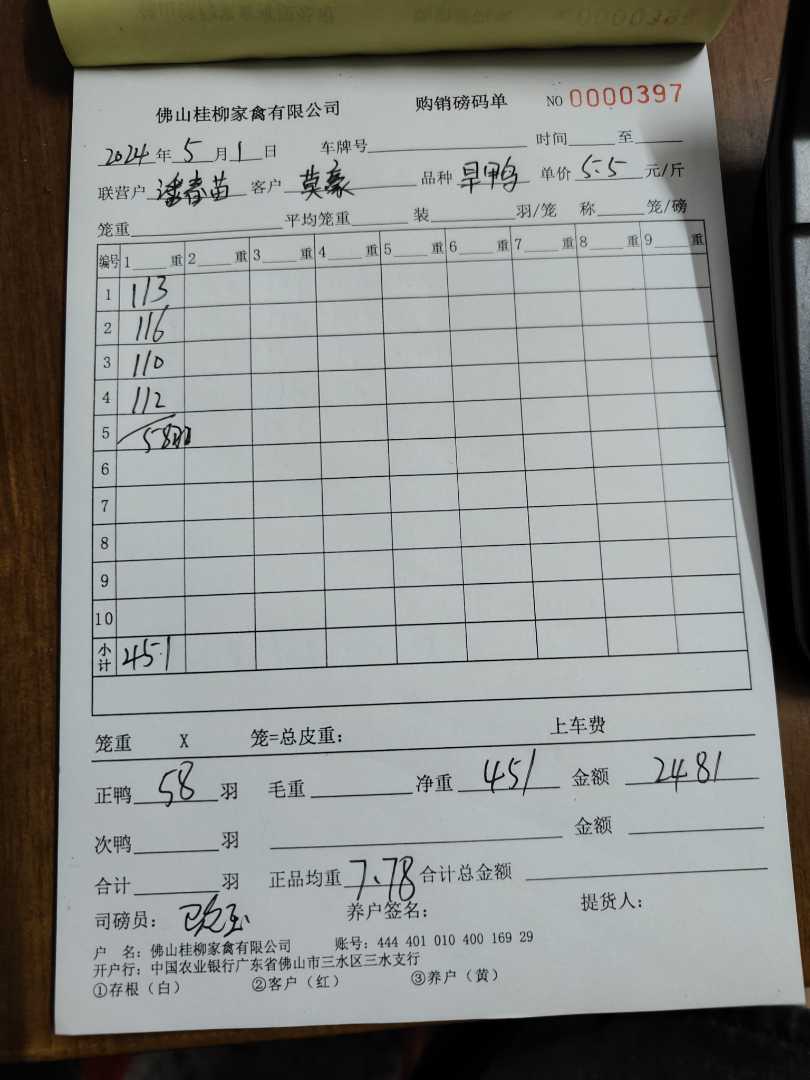 佛山桂柳家禽有限公司 购销磅码单 NO 0000397
2024年5月1日 车牌号 时间 至
联营户 潘春苗 客户 莫豪 品种 旱鸭 单价 5.5 元/斤
笼重 平均笼重 装 羽/笼 称 笼/磅
编号 1 重 2 重 3 重 4 重 5 重 6 重 7 重 8 重 9 重
1 113
2 116
3 110
4 112
5 58羽
6
7
8
9
10
小计 451
笼重 X 笼=总皮重: 上车费
正鸭 58 羽 毛重 净重 451 金额 2481
次鸭 羽 金额
合计 羽 正品均重 7.78 合计总金额
司磅员: 养户签名: 提货人:
户 名: 佛山桂柳家禽有限公司 账号: 444 401 010 400 169 29
开户行: 中国农业银行广东省佛山市三水区三水支行
①存根(白) ②客户(红) ③养户(黄)